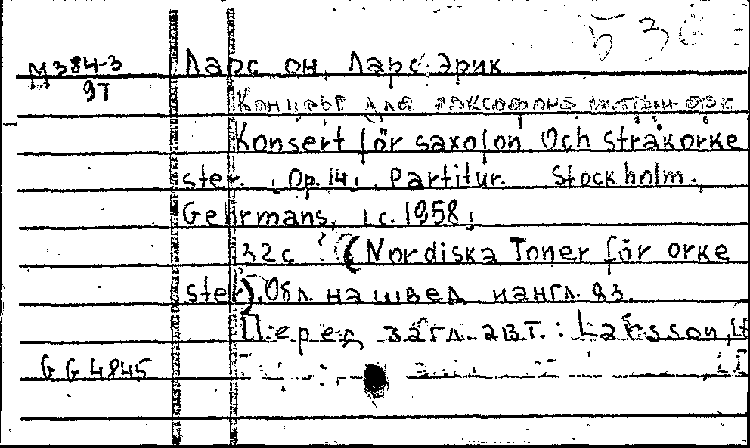 530
М384-3 Ларс он, Ларс Эрик
9Т
Концерт для саксофона
Konsert för saxofon Och stråkorke
ster. Op.14. Partitur. Stockholm.
Gehrmans, i.c.1958.
32с (Nordiska Toner för orke
ster). Обл. на швед. и англ. яз.
Перед загл. авт.: Larsson,
GG4845